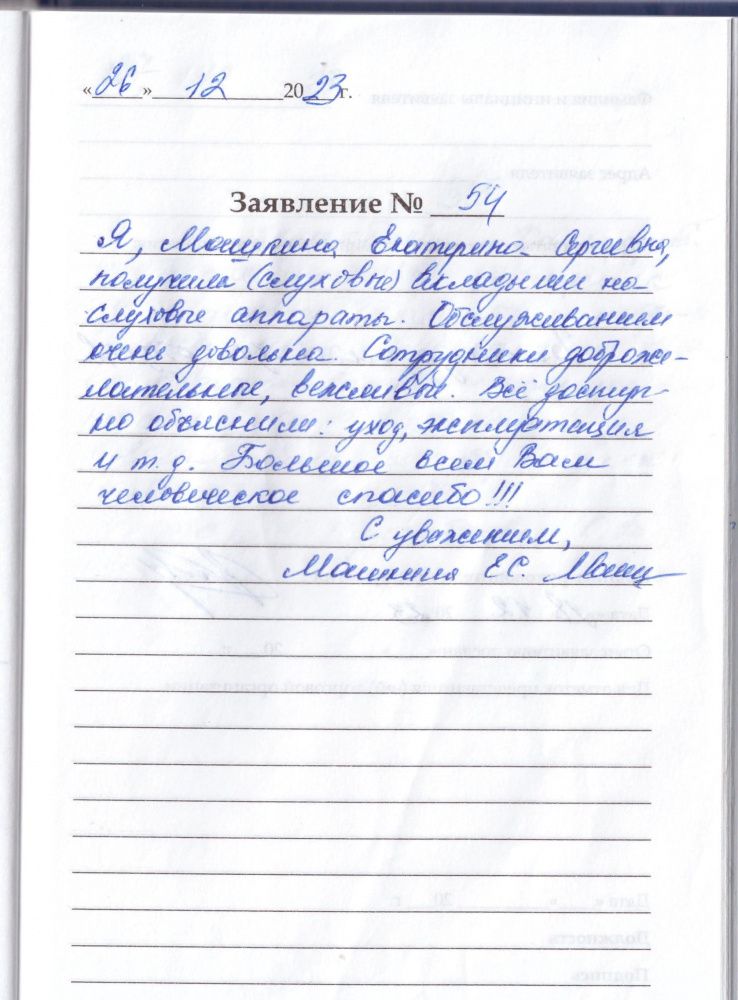 «26» 12 2023г.
Заявление № 54
Я, Машкина Екатерина Сергеевна,
получила (слуховые) вкладыши на
слуховые аппараты. Обслуживанием
очень довольна. Сотрудники доброже-
лательные, вежливые. Всё доступ-
но объяснили: уход, эксплуатация
и т.д. Большое всем Вам
человеческое спасибо!!!
С уважением,
Машкина Е.С.